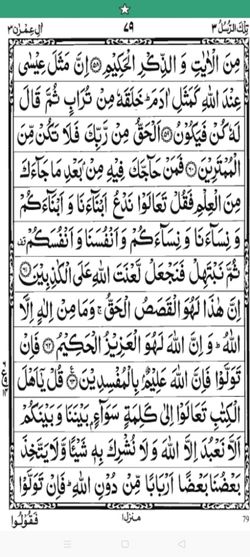 تِلْكَ الرُّسُلُ ٣ ٧٩ اٰلِ عِمْرٰن ٣
مِنَ الْاٰیٰتِ وَ الذِّكْرِ الْحَكِیْمِ ۝۵۸ اِنَّ مَثَلَ عِیْسٰى
عِنْدَ اللّٰهِ كَمَثَلِ اٰدَمَ ؕ خَلَقَهٗ مِنْ تُرَابٍ ثُمَّ قَالَ
لَهٗ كُنْ فَیَكُوْنُ ۝۵۹ اَلْحَقُّ مِنْ رَّبِّكَ فَلَا تَكُنْ مِّنَ
الْمُمْتَرِیْنَ ۝۶۰ فَمَنْ حَآجَّكَ فِیْهِ مِنْۢ بَعْدِ مَا جَآءَكَ
مِنَ الْعِلْمِ فَقُلْ تَعَالَوْا نَدْعُ اَبْنَآءَنَا وَ اَبْنَآءَكُمْ
وَ نِسَآءَنَا وَ نِسَآءَكُمْ وَ اَنْفُسَنَا وَ اَنْفُسَكُمْ
ثُمَّ نَبْتَهِلْ فَنَجْعَلْ لَّعْنَتَ اللّٰهِ عَلَى الْكٰذِبِیْنَ ۝۶۱
اِنَّ هٰذَا لَهُوَ الْقَصَصُ الْحَقُّ ۚ وَ مَا مِنْ اِلٰهٍ اِلَّا
اللّٰهُ ؕ وَ اِنَّ اللّٰهَ لَهُوَ الْعَزِیْزُ الْحَكِیْمُ ۝۶۲ فَاِنْ
تَوَلَّوْا فَاِنَّ اللّٰهَ عَلِیْمٌۢ بِالْمُفْسِدِیْنَ ۝۶۳ قُلْ یٰۤاَهْلَ
الْكِتٰبِ تَعَالَوْا اِلٰى كَلِمَةٍ سَوَآءٍۭ بَیْنَنَا وَ بَیْنَكُمْ
اَلَّا نَعْبُدَ اِلَّا اللّٰهَ وَ لَا نُشْرِكَ بِهٖ شَیْـًٔا وَّ لَا یَتَّخِذَ
بَعْضُنَا بَعْضًا اَرْبَابًا مِّنْ دُوْنِ اللّٰهِ ؕ فَاِنْ تَوَلَّوْا
فَقُوْلُوا منزل ۱ 79